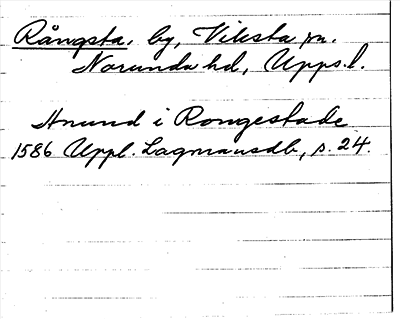 Rångsta, by, Viksta sn.
Norunda hd, Upps. l.
Anund i Rongestade
1586 Uppl. Lagmansdb., s. 24.